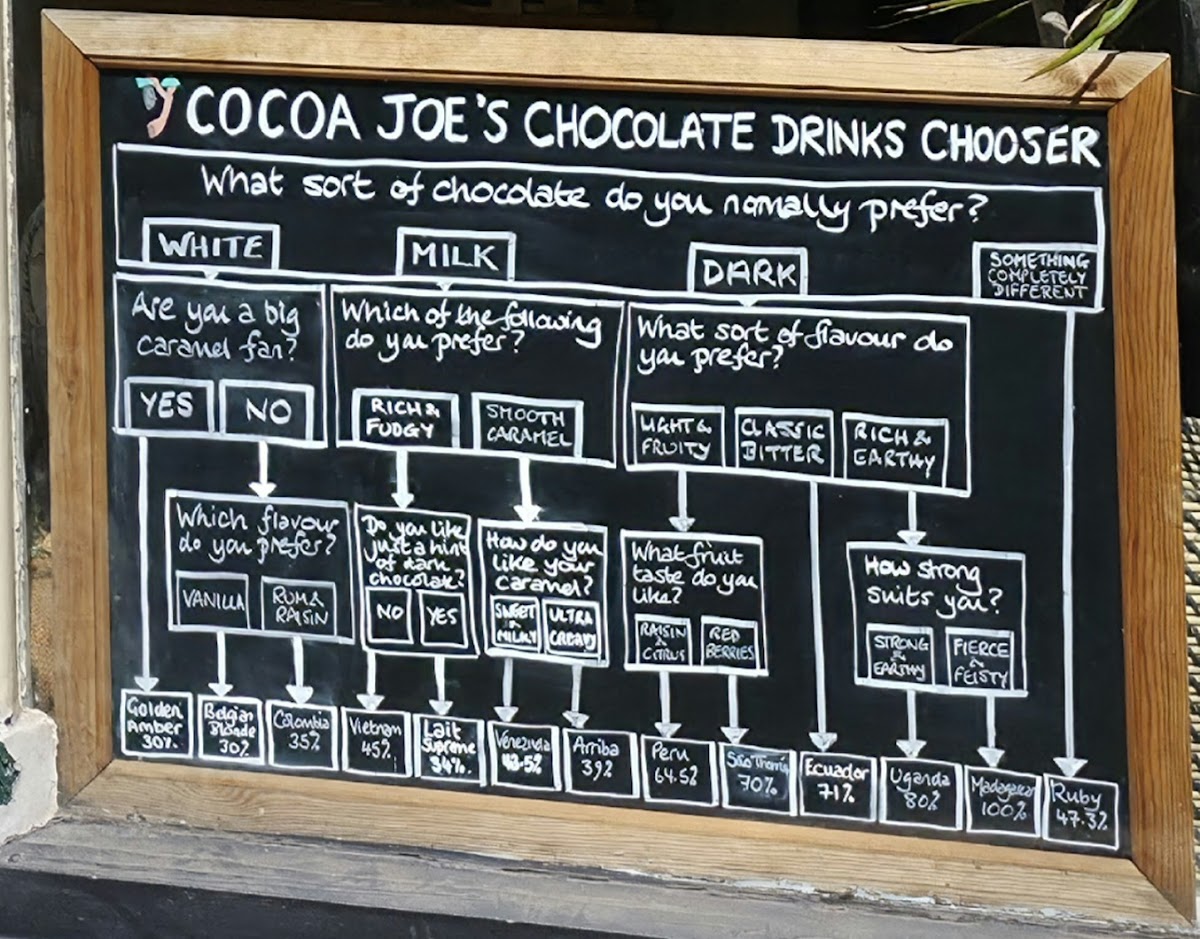 COCOA JOE'S CHOCOLATE DRINKS CHOOSER
What sort of chocolate do you normally prefer?
WHITE
MILK
DARK
SOMETHING
COMPLETELY
DIFFERENT
Are you a big
caramel fan?
YES
NO
Which of the following
do you prefer?
RICH &
FUDGY
SMOOTH
CARAMEL
What sort of flavour do
you prefer?
LIGHT &
FRUITY
CLASSIC
BITTER
RICH &
EARTHY
Which flavour
do you prefer?
VANILLA
RUM &
RAISIN
Do you like
just a hint
of dark
chocolate?
NO
YES
How do you
like your
caramel?
SWEET
&
MILKY
ULTRA
CREAMY
What fruit
taste do you
like?
RAISIN
&
CITRUS
RED
BERRIES
How strong
suits you?
STRONG
&
EARTHY
FIERCE
&
FEISTY
Golden
Amber
30%
Belgian
Blonde
30%
Colombia
35%
Vietnam
45%
Lait
Supreme
34%
Venezuela
43.5%
Arriba
39%
Peru
64.5%
São Thomé
70%
Ecuador
71%
Uganda
80%
Madagascar
100%
Ruby
47.3%